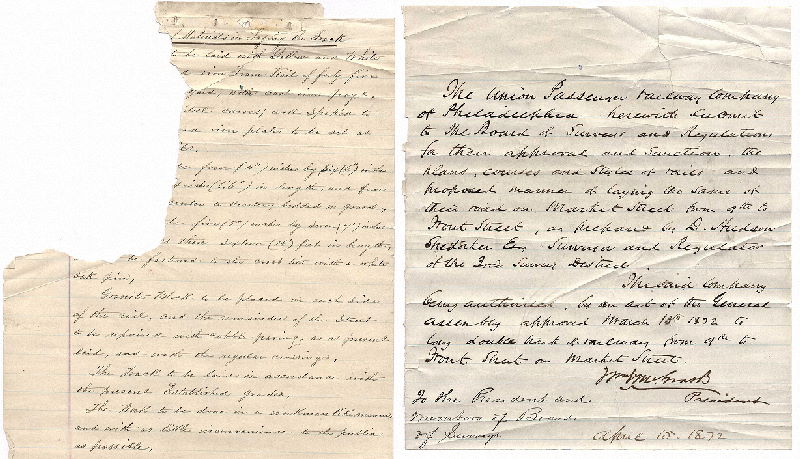 Materials in Laying the Track
to be laid with Yellow and White
iron Tram Rail of forty five
yard, with cast iron frogs
curves, with Spikes to
iron plates to be set at
four (4") inches by six (6") inches
in length, and from
center to center, bedded in gravel,
five (5") inches by seven (7") inches
than sixteen (16) feet in length,
fastened to the cross ties with a white
oak pin,
Granite Block to be placed on each side
of the rail, and the remainder of the Street
to be repaired with cobble paving, as at present
laid, and with the regular crossings.
The Track to be laid in accordance with
the present Established grades.
The Work to be done in a workmanlike manner,
and with as little inconvenience to the public
as possible.
The Union Passenger railway Company
of Philadelphia herewith Submit
to the Board of Surveys and Regulations
for their approval and Sanction, the
plans, courses and Styles of rails and
proposed manner of laying the same of
their road on Market Street from 9th to
Front Street, as prepared by D. Hudson
Shedaker Esq Surveyor and Regulator
of the 3rd Survey District.
The said Company
being authorized, by an act of the General
assembly approved March 18th 1872 to
lay double track & railway from 9th to
Front Street on Market Street
President
To the President and
members of Board
of Surveys
April 15. 1872